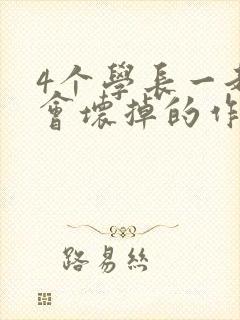 4个學長一
會壞掉的作
路易絲